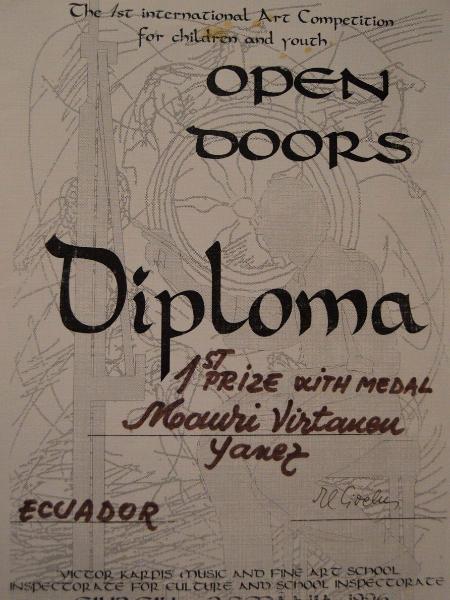 The 1st international Art Competition
for children and youth
OPEN
DOORS
Diploma
1ST PRIZE WITH MEDAL
Moauri Virtanen
Yanez
ECUADOR
"VICTOR KARPIS" MUSIC AND FINE ART SCHOOL
INSPECTORATE FOR CULTURE AND SCHOOL INSPECTORATE
1996